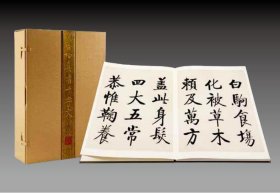 白駒食場
化被草木
賴及萬方
蓋此身髮
四大五常
恭惟鞠養